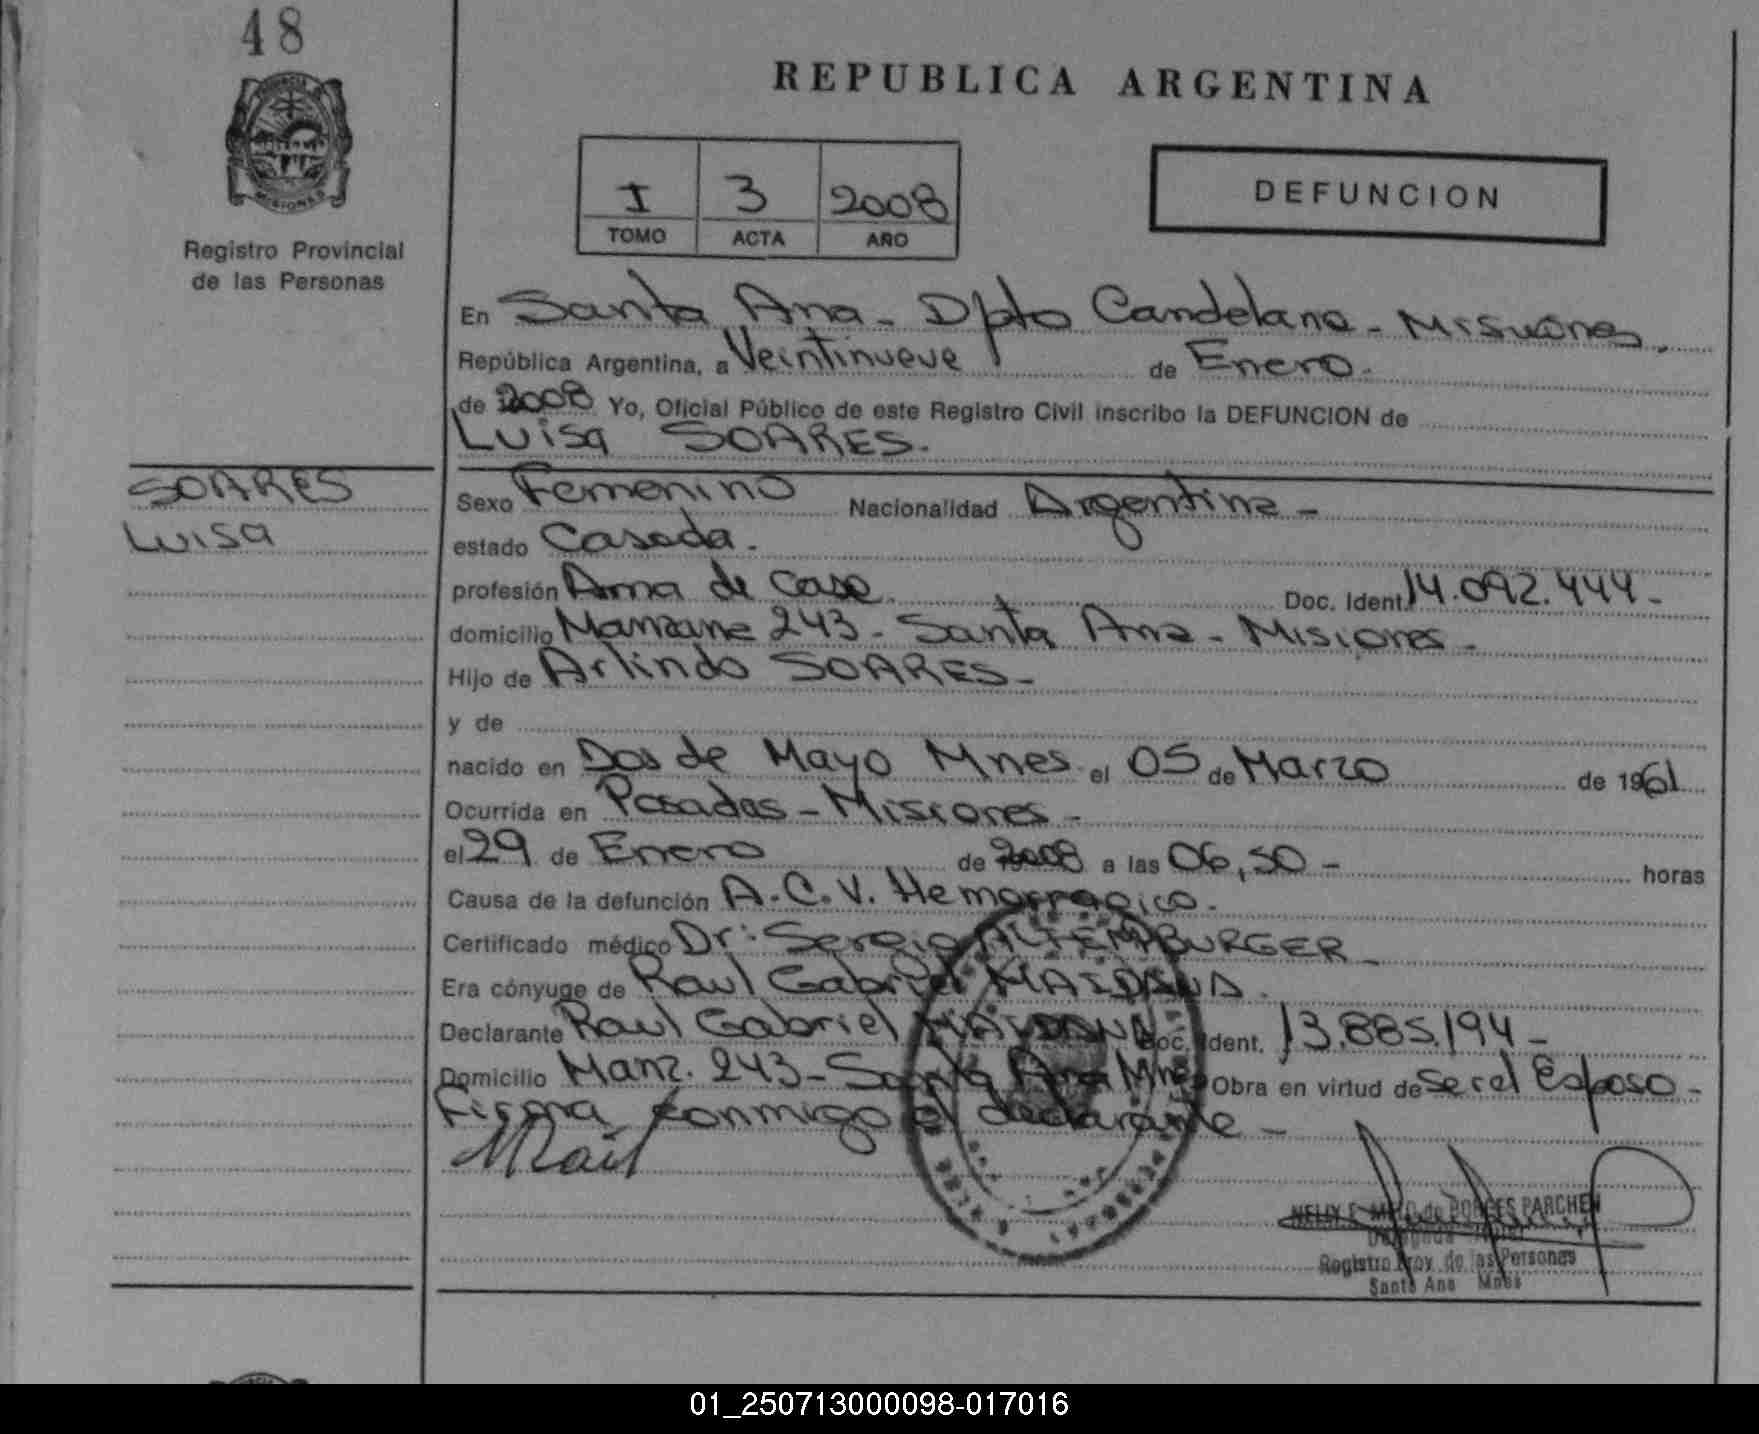 48
REPUBLICA ARGENTINA
PROVINCIA
MISIONES
Registro Provincial
de las Personas
I 3 2008
TOMO ACTA AÑO
DEFUNCION
En Santa Ana - Dpto Candelaria - Misiones.
República Argentina, a Veintinueve de Enero.
de 2008 Yo, Oficial Público de este Registro Civil inscribo la DEFUNCION de
Luisa SOARES.
SOARES
Luisa
Sexo Femenino Nacionalidad Argentina -
estado Casada.
profesión Ama de casa Doc. Ident. 14.092.444 -
domicilio Manzana 243 - Santa Ana - Misiones -
Hijo de Arlindo SOARES -
y de
nacido en Dos de Mayo Mnes el 05 de Marzo de 1961
Ocurrida en Posadas - Misiones -
el 29 de Enero de 2008 a las 06,50 - horas
Causa de la defunción A.C.V. Hemorragico.
Certificado médico Dr: Sergio ALTEMBURGER -
Era cónyuge de Raul Gabriel MAIDANA.
Declarante Raul Gabriel MAIDANA Doc. Ident. 13.885.194 -
Domicilio Manz. 243 - Santa Ana Mnes Obra en virtud de ser el Esposo -
Firma conmigo el declarante -
NELLY E. de BORGES PARCHEN
Delegada
Registro Prov. de las Personas
Santa Ana Mnes
01_250713000098-017016